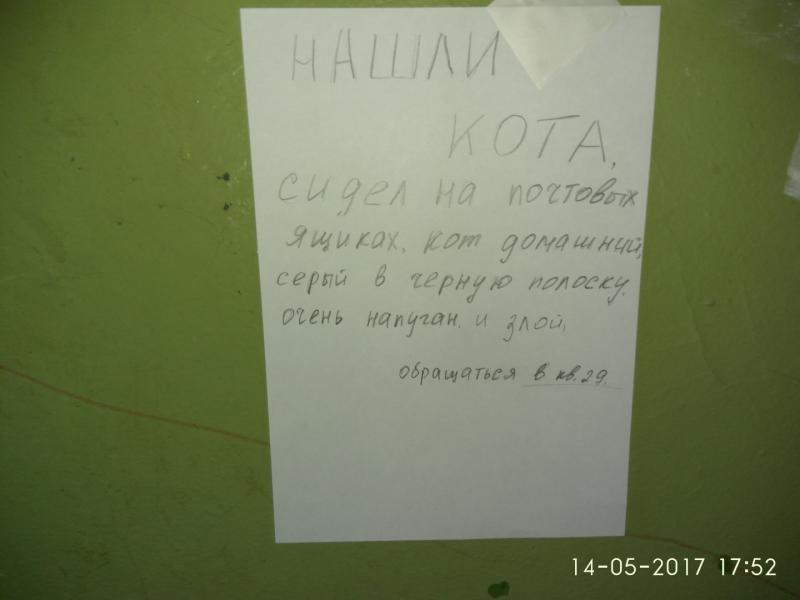 НАШЛИ
КОТА,
сидел на почтовых
ящиках. кот домашний,
серый в черную полоску.
очень напуган. и злой.
обращаться в кв. 29.
14-05-2017 17:52